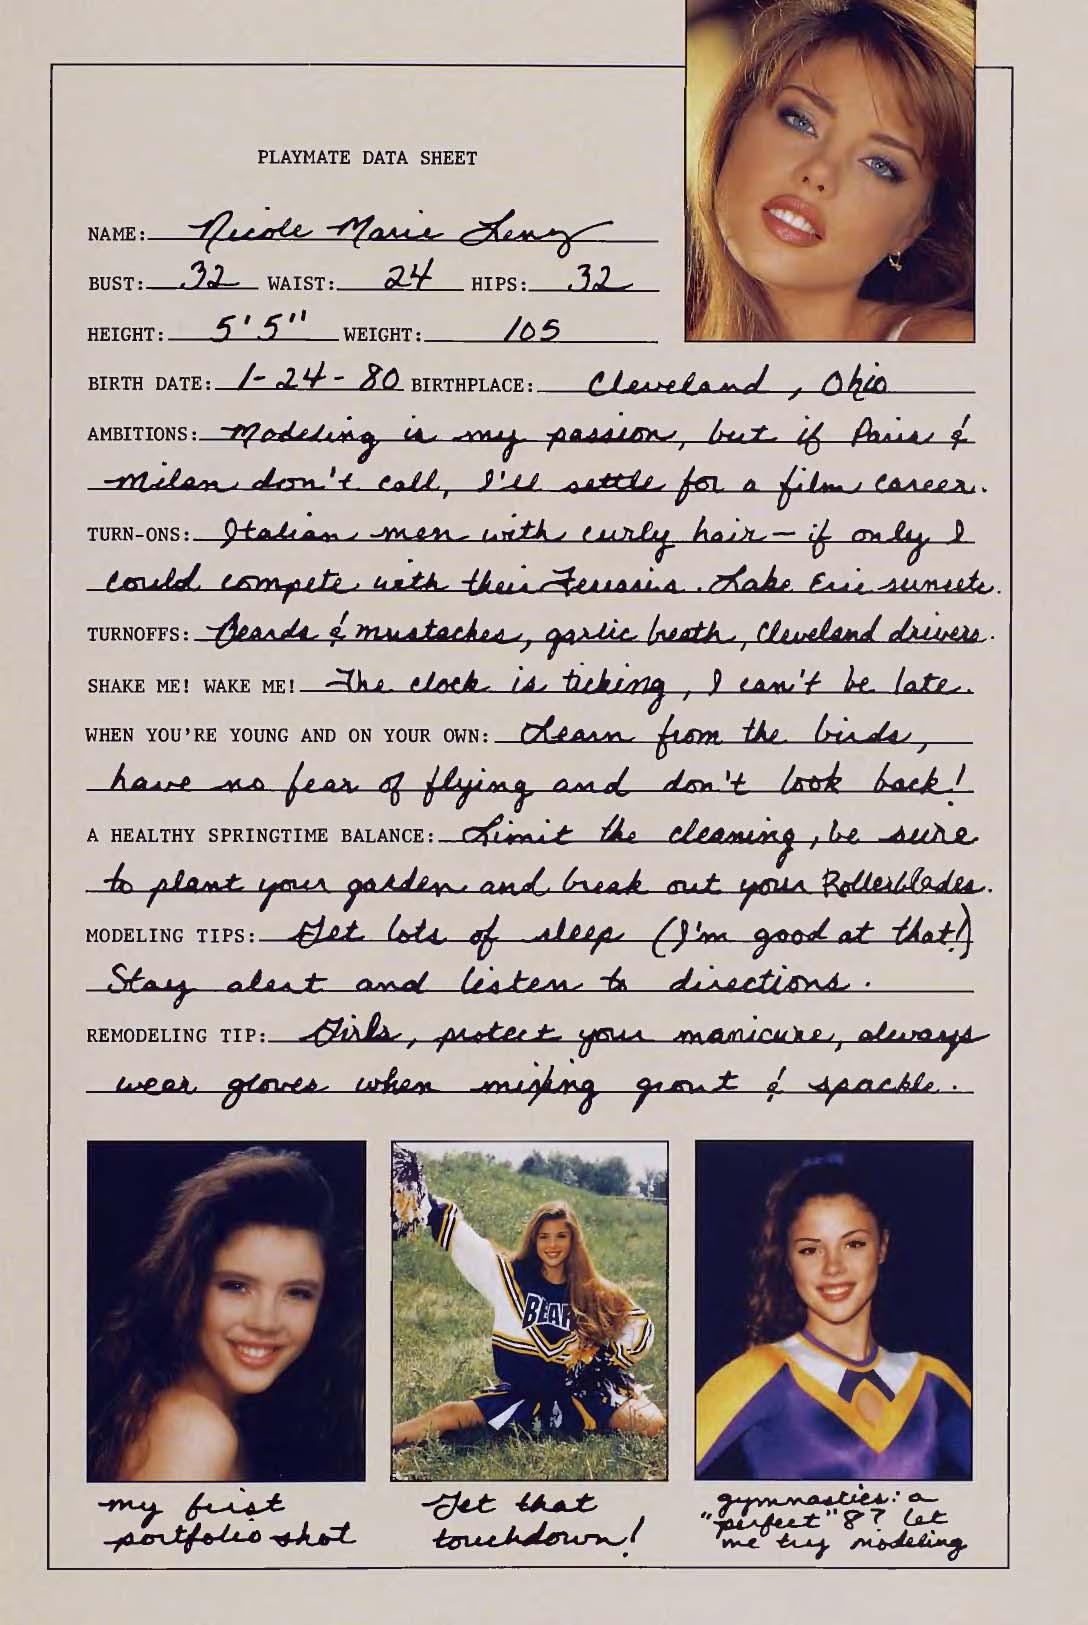 PLAYMATE DATA SHEET
NAME: Nicole Marie Lenz
BUST: 32 WAIST: 24 HIPS: 32
HEIGHT: 5'5" WEIGHT: 105
BIRTH DATE: 1-24-80 BIRTHPLACE: Cleveland, Ohio
AMBITIONS: Modeling is my passion, but if Paris &
Milan don't call, I'll settle for a film career.
TURN-ONS: Italian men with curly hair - if only I
could compete with their Ferraris. Lake Erie sunsets.
TURNOFFS: Beards & mustaches, garlic breath, Cleveland drivers.
SHAKE ME! WAKE ME! The clock is ticking, I can't be late.
WHEN YOU'RE YOUNG AND ON YOUR OWN: Learn from the birds,
have no fear of flying and don't look back!
A HEALTHY SPRINGTIME BALANCE: Limit the cleaning, be sure
to plant your garden and break out your Rollerblades.
MODELING TIPS: Get lots of sleep (I'm good at that!)
Stay alert and listen to directions.
REMODELING TIP: Girls, protect your manicure, always
wear gloves when mixing grout & spackle.
BEAR
my first
portfolio shot
Get that
touchdown!
gymnastics: a
"perfect" 8? Let
me try modeling